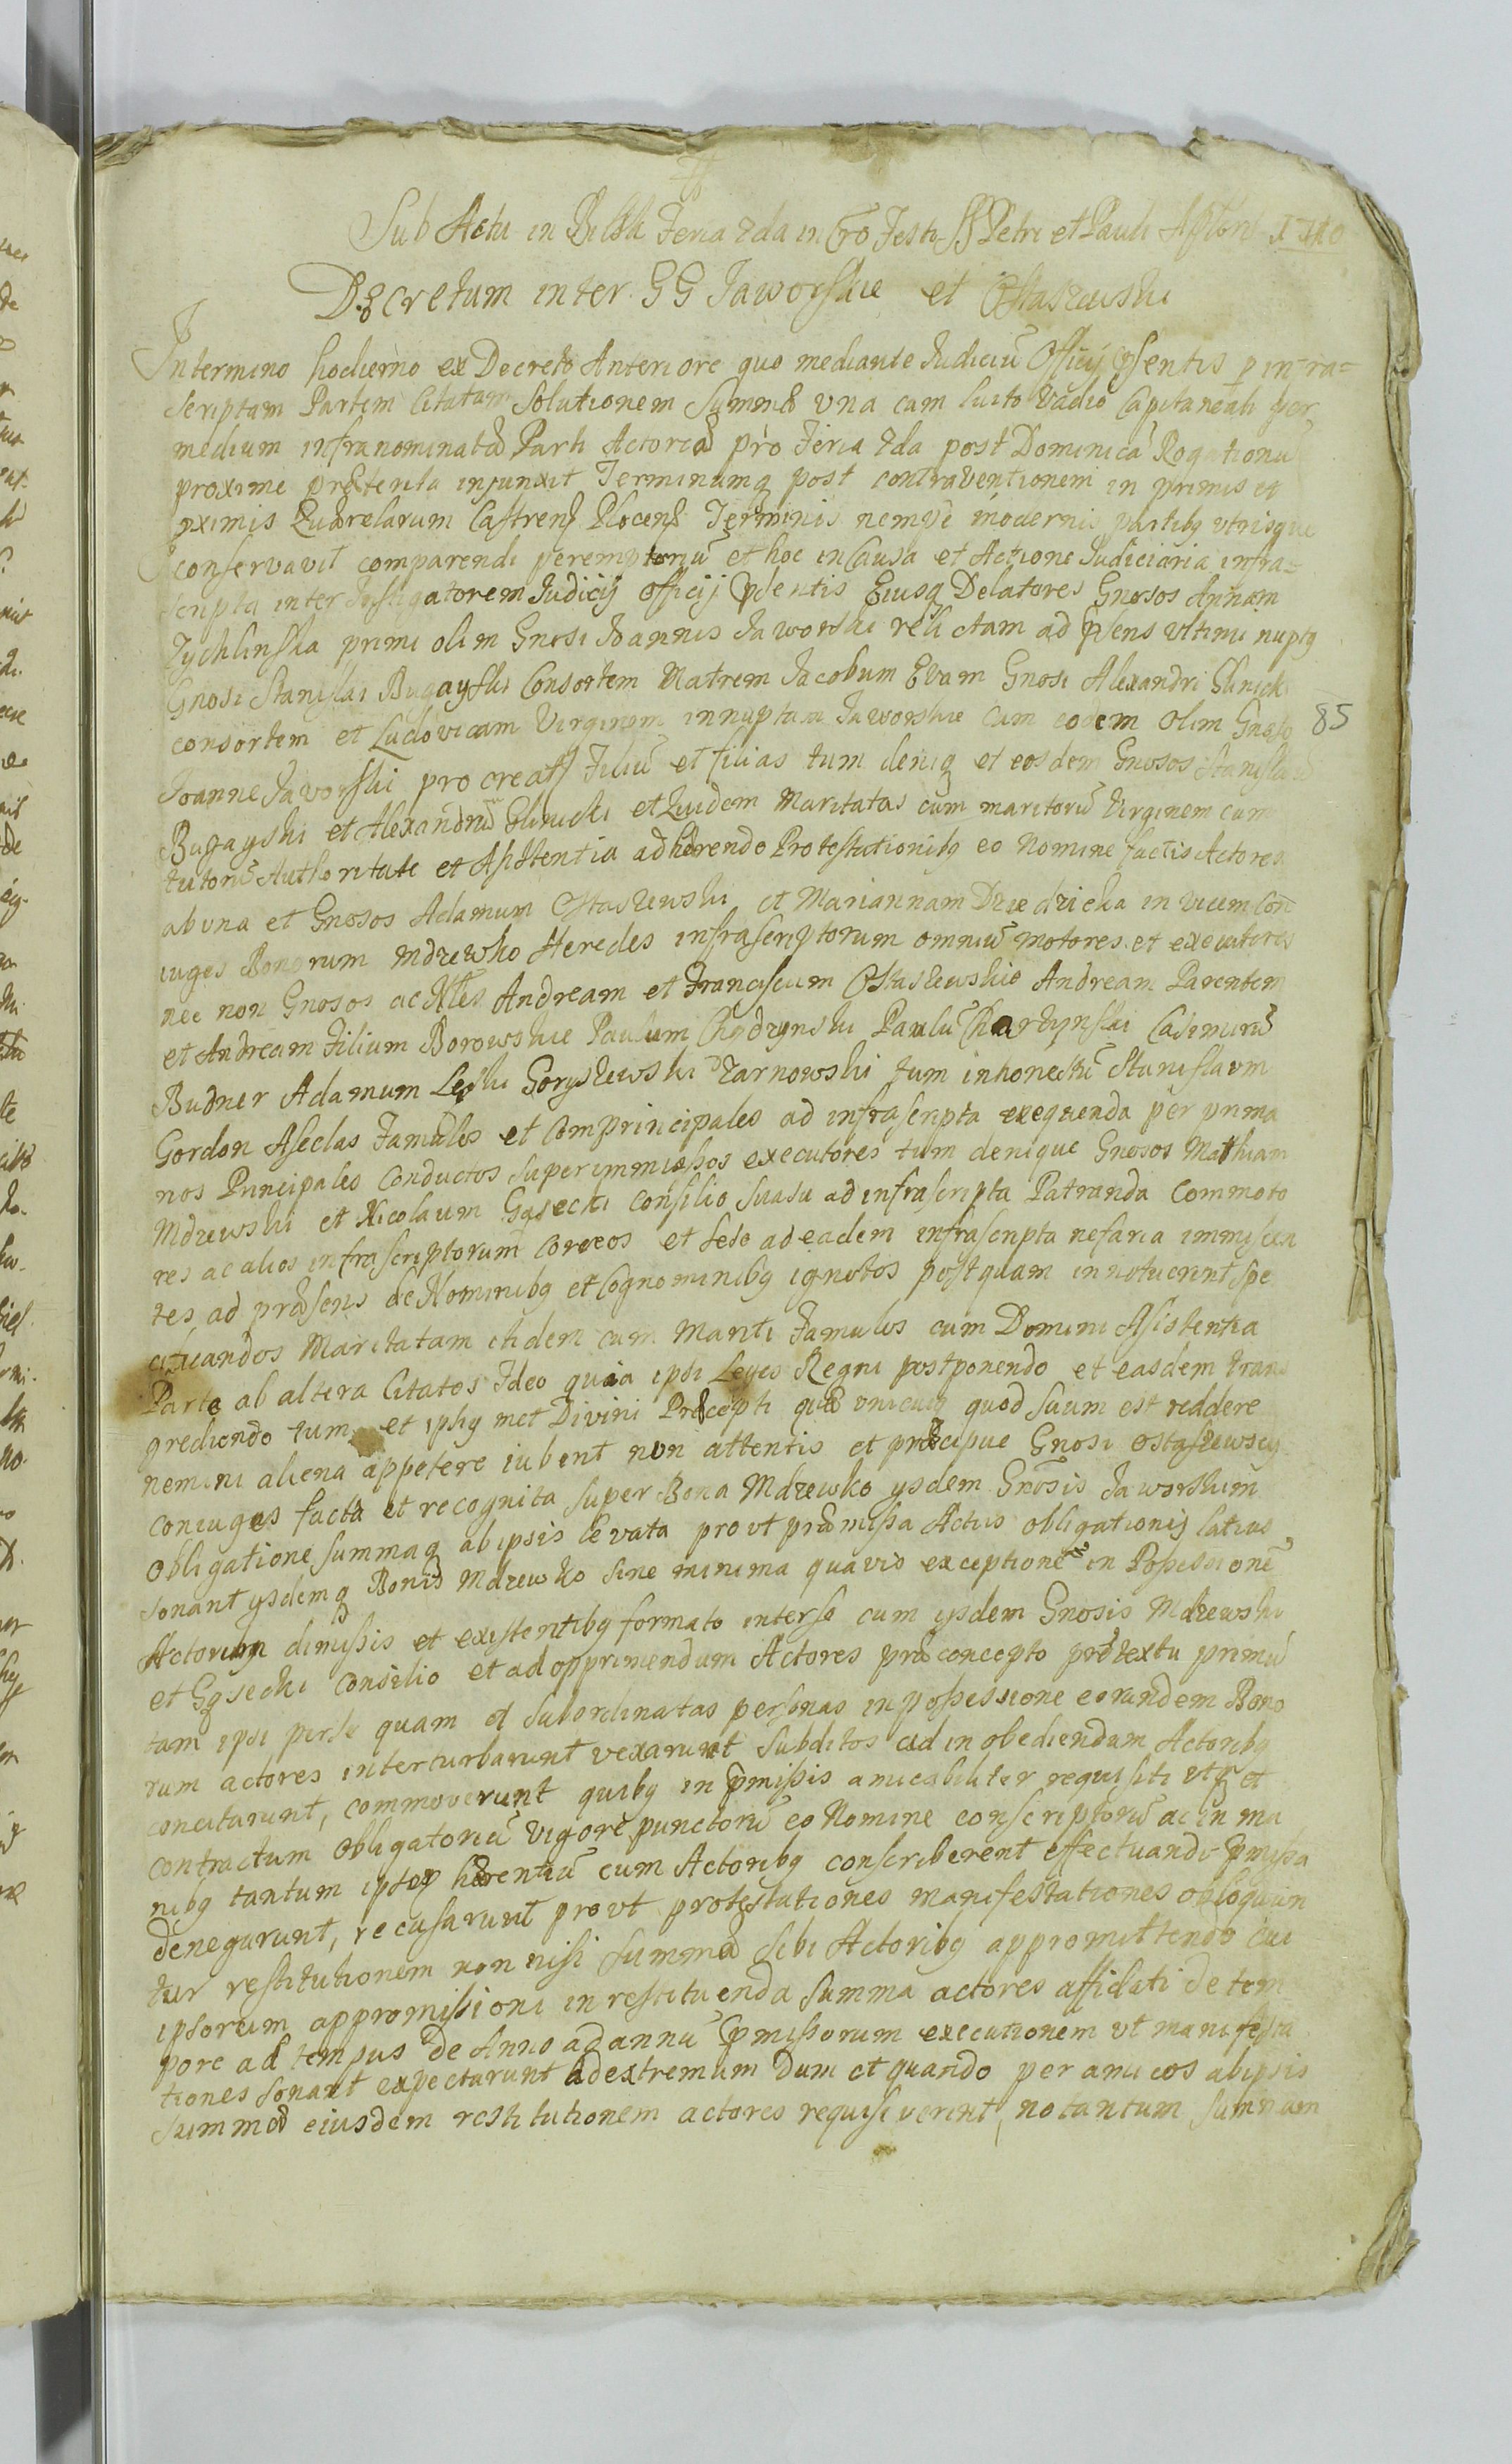 Sub Actu in Bilsk Feria 2da in Cro Festi SS Petri et Pauli Aplorũ 1710
Decretum inter GG Jaworskie et Ostaszewski
In termino hodierno ex Decreto Anteriore quo mediante Judiciũ Officij Pñsentis p infra=
scriptam Partem Citatam Solutionem Summæ vna cum luito Vadio Capitaneali per
medium infranominatæ Parti Actoreæ pro Feria 2da post Dominicã Rogationũ
proxime præterita injunxit Terminumq post contraventionem in primis et
pximis Quærelarum Castrens Plocens Terminis nempe modernis partibg vtrisque
conservavit comparendi peremptoriũ et hoc in Causa et Actione Judiciaria infra=
scripta inter Instigatorem Judicij officij Pñsentis Eiusq Delatores Gnosos Annam
Zychlinska primi olim Gnosi Joannis Jaworski relictam ad psens vltimi nuptg
Gnosi Stanislai Bugayski Consortem Matrem Jacobum Evam Gnosi Alexandri Glinicki
consortem et Ludovicam Virginem innuptam Jaworskie cum eodem olim Gnoso
85
Joanne Jaworski procreat Filiũ et filias tum deniq et eosdem Gnosos Stanislaũ
Bugayski et Alexandrũ Glinicki et Quidem Maritatas cum maritorũ Virginem cum
tutorũ Authoritate et Assistentia adhærendo Protestationibg eo Nomine factis Actores
ab vna et Gnosos Adamum Ostaszewski et Mariannam Dziedzicka in vicem Con
iuges Bonorum Mdzewko Heredes infrascriptorum omniũ motores et executores
nec non Gnosos ac Nbles Andream et Franciscum Ostaszewskie Andream Parentem
et Andream Filium Borowskie Paulum Chodzynski Paulũ Chardzynski Casimirũ
Budner Adamum Leski Goryszewski Zarnowski tum inhonestũ Stanislaum
Gordon Aseclas Famulos et Comprincipales ad infrascripta exequenda per prima
nos Principales Conductos superimmissos executores tum denique Gnosos Mathiam
Mdzewski et Nicolaum Gąsecki consilio suasu ad infrascripta Patranda Commoto
res ac alios infrascriptorum Correos et sese ad eadem infrascripta nefaria immiscen
tes ad præsens de Nominibg et Cognominibg ignotos postquam innotuerint spe
cificandos Maritatam itidem cum Mariti Famulos cum Domini Assistentia
Parte ab altera Citatos Ideo quia ipsi Leges Regni postponendo et easdem trans
grediendo tum et ipsiq met Divini Præcepti quæ vnicuiq quod suum est reddere
nemini aliena appetere iubent non attentis et præcipue Gnosi Ostaszewscy
coniuges facta et recognita super Bona Mdzewko ysdem Gnosis Jaworskim
obligatione summaq ab ipsis levata provt præmissa Actus obligationis latius
sonant ysdemq Bonis Mdzewko sine minima quavis exceptione in Possessionẽ
Actoribg dimissis et existentibg formato inter se cum ysdem Gnosis Mdzewski
et Gąsecki Consilio et ad opprimendum Actores præconcepto prætextu primũ
tam ipsi per se quam et subordinatas personas in possessione eorundem Bono
rum actores interturbarunt vexarunt subditos ad inobediendum Actoribg
concitarunt, commoverunt quibg in pmissis amicabiliter requisiti vtq et
contractum obligatoriũ vigore punctorũ eo Nomine conscriptorũ ac in ma
nibg tantum ipsoq hærentiũ cum Actoribg conscriberent effectuandi pmissa
denegarunt, recusarunt provt protestationes manifestationes obloquun
tur restitutionem non nisi summæ sibi Actoribg appromittendo cui
ipsorum appromissioni in restituenda summa actores affidati de tem
pore ad tempus de Anno ad annũ pmissorum executionem vt manifesta
tiones sonant expectarunt ad extremum dum et quando per amicos ab ipsis
summæ eiusdem restitutionem actores requisiverint, no tantum summam